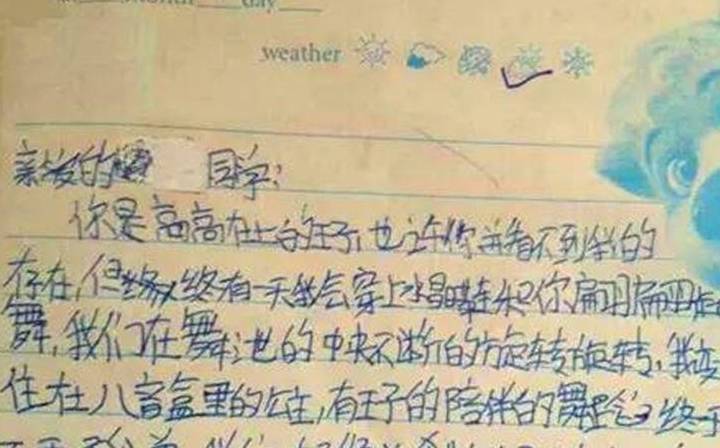 month day
weather
亲爱的 同学:
你是高高在上的王子,也许你并看不到我的
存在,但终有一天我会穿上水晶鞋和你翩翩起
舞,我们在舞池的中央不断的旋转旋转,我变
住在八音盒里的公主,有王子的陪伴的舞 终于